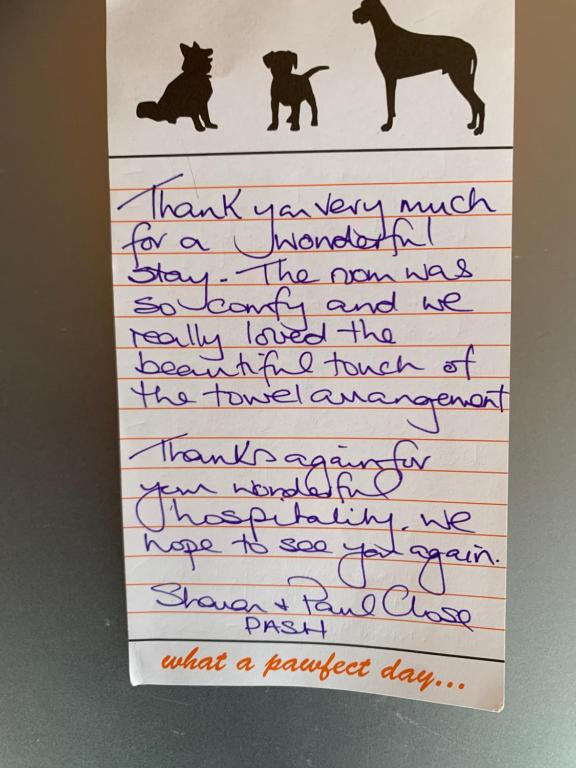 Thank you very much
for a wonderful
stay. The room was
so comfy and we
really loved the
beautiful touch of
the towel arrangement
Thanks again for
your wonderful
hospitality. We
hope to see you again.
Sharon + Paul Close
PASH
what a pawfect day...